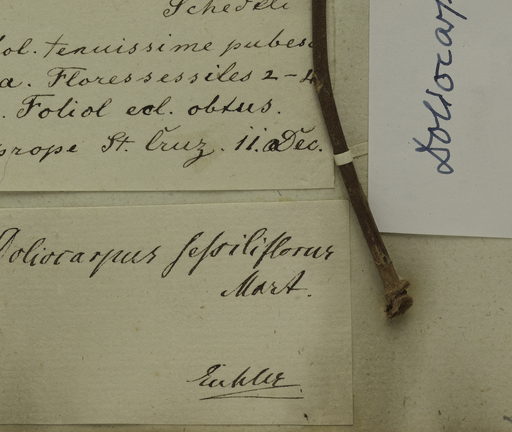 Schedel
fol. tenuissime pubesc
a. Flores sessiles 2-4
. Foliol ecl. obtus.
prope St. Cruz. 11. Dec.
Doliocarpus sessiliflorus
Mart.
Eichler
Doliocarp